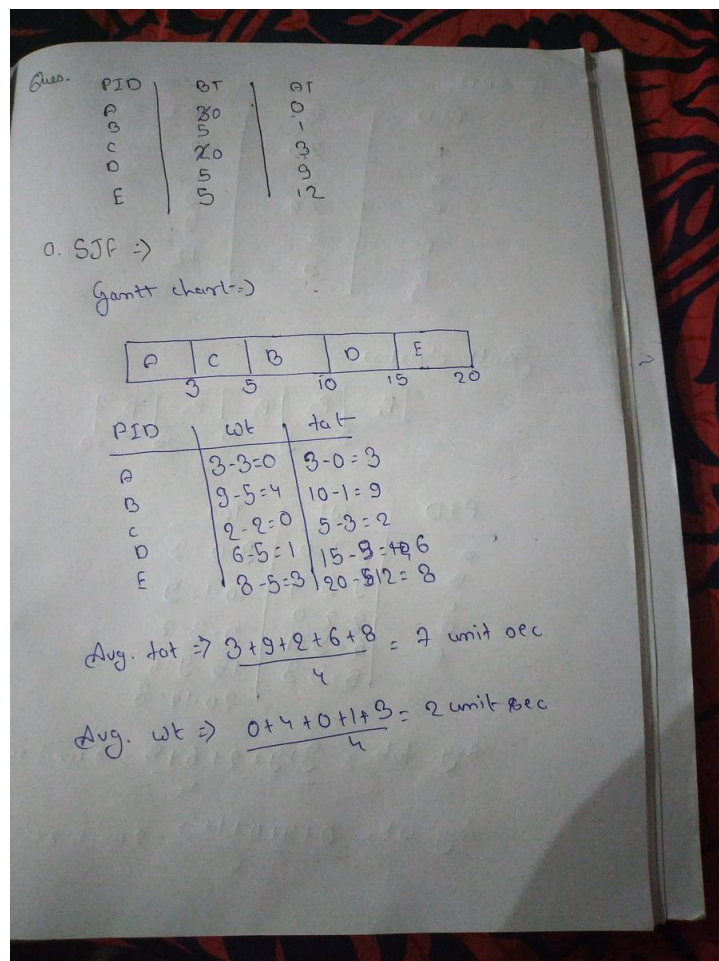 Ques. PID BT AT
A 30 0
B 5 1
C 20 3
D 5 9
E 5 12
0. SJF =>
Gantt chart=>
A C B D E
3 5 10 15 20
PID wt tat
A 3-3=0 3-0=3
B 9-5=4 10-1=9
C 2-2=0 5-3=2
D 6-5=1 15-9=6
E 8-5=3 20-12=8
Avg. tat => 3+9+2+6+8 = 7 unit sec
4
Avg. wt => 0+4+0+1+3 = 2 unit sec
4